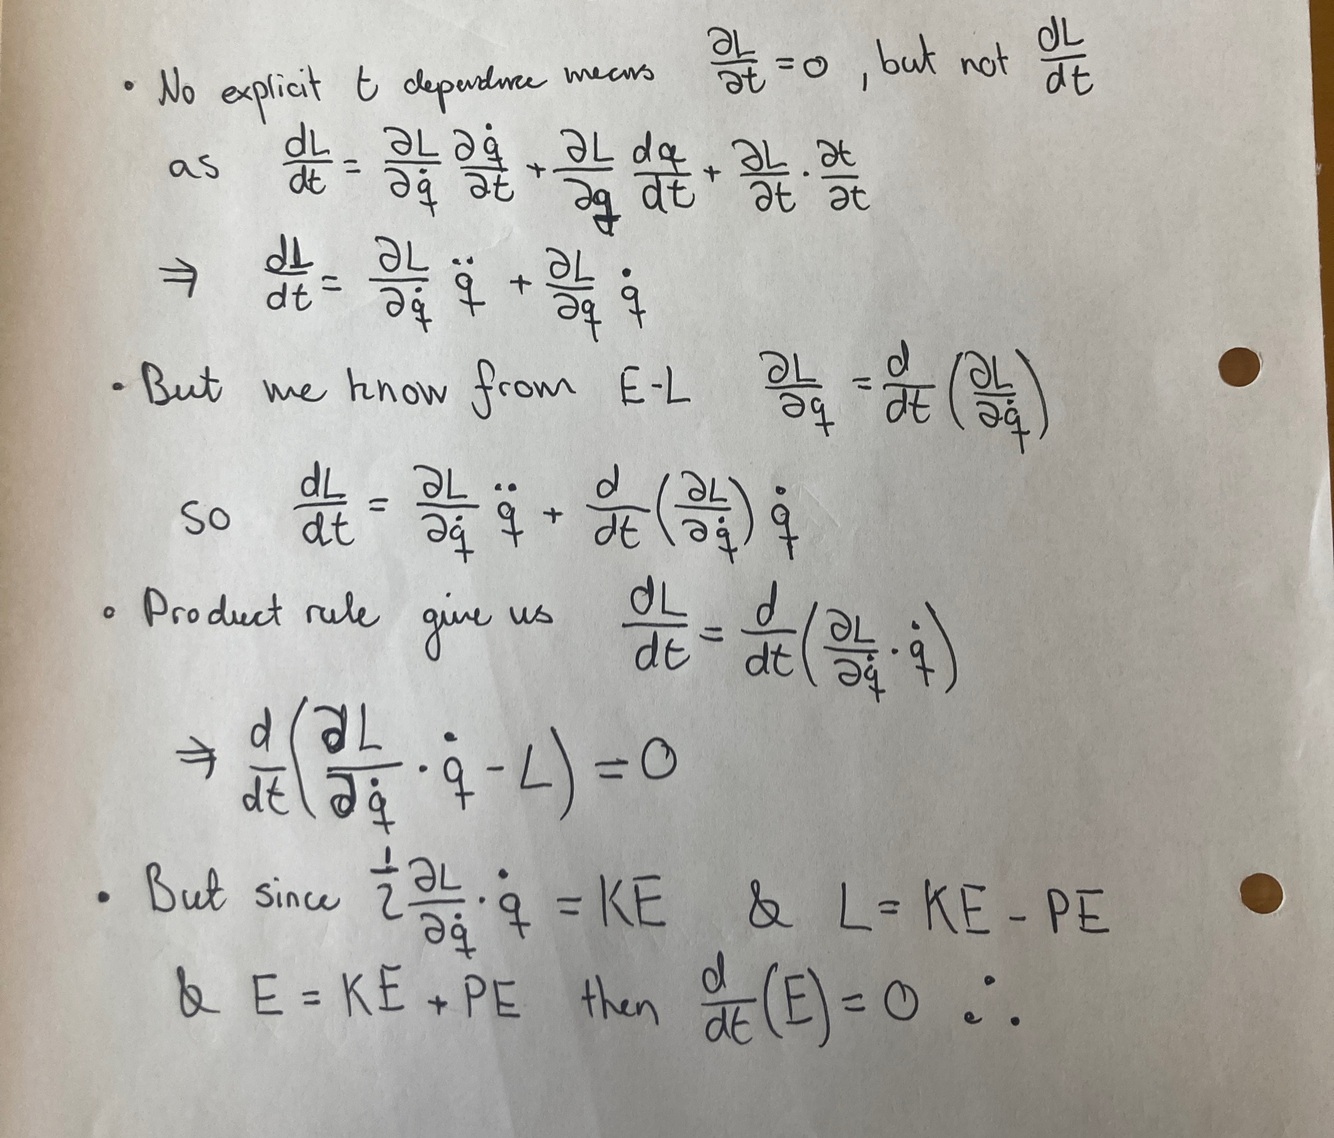 • No explicit t dependence means ∂L/∂t = 0, but not dL/dt
as dL/dt = ∂L/∂q̇ ∂q̇/∂t + ∂L/∂q dq/dt + ∂L/∂t · ∂t/∂t
⇒ dL/dt = ∂L/∂q̇ q̈ + ∂L/∂q q̇
• But we know from E-L ∂L/∂q = d/dt (∂L/∂q̇)
so dL/dt = ∂L/∂q̇ q̈ + d/dt (∂L/∂q̇) q̇
• Product rule give us dL/dt = d/dt (∂L/∂q̇ · q̇)
⇒ d/dt (∂L/∂q̇ · q̇ - L) = 0
• But since 1/2 ∂L/∂q̇ · q̇ = KE & L = KE - PE
& E = KE + PE then d/dt (E) = 0 ∴